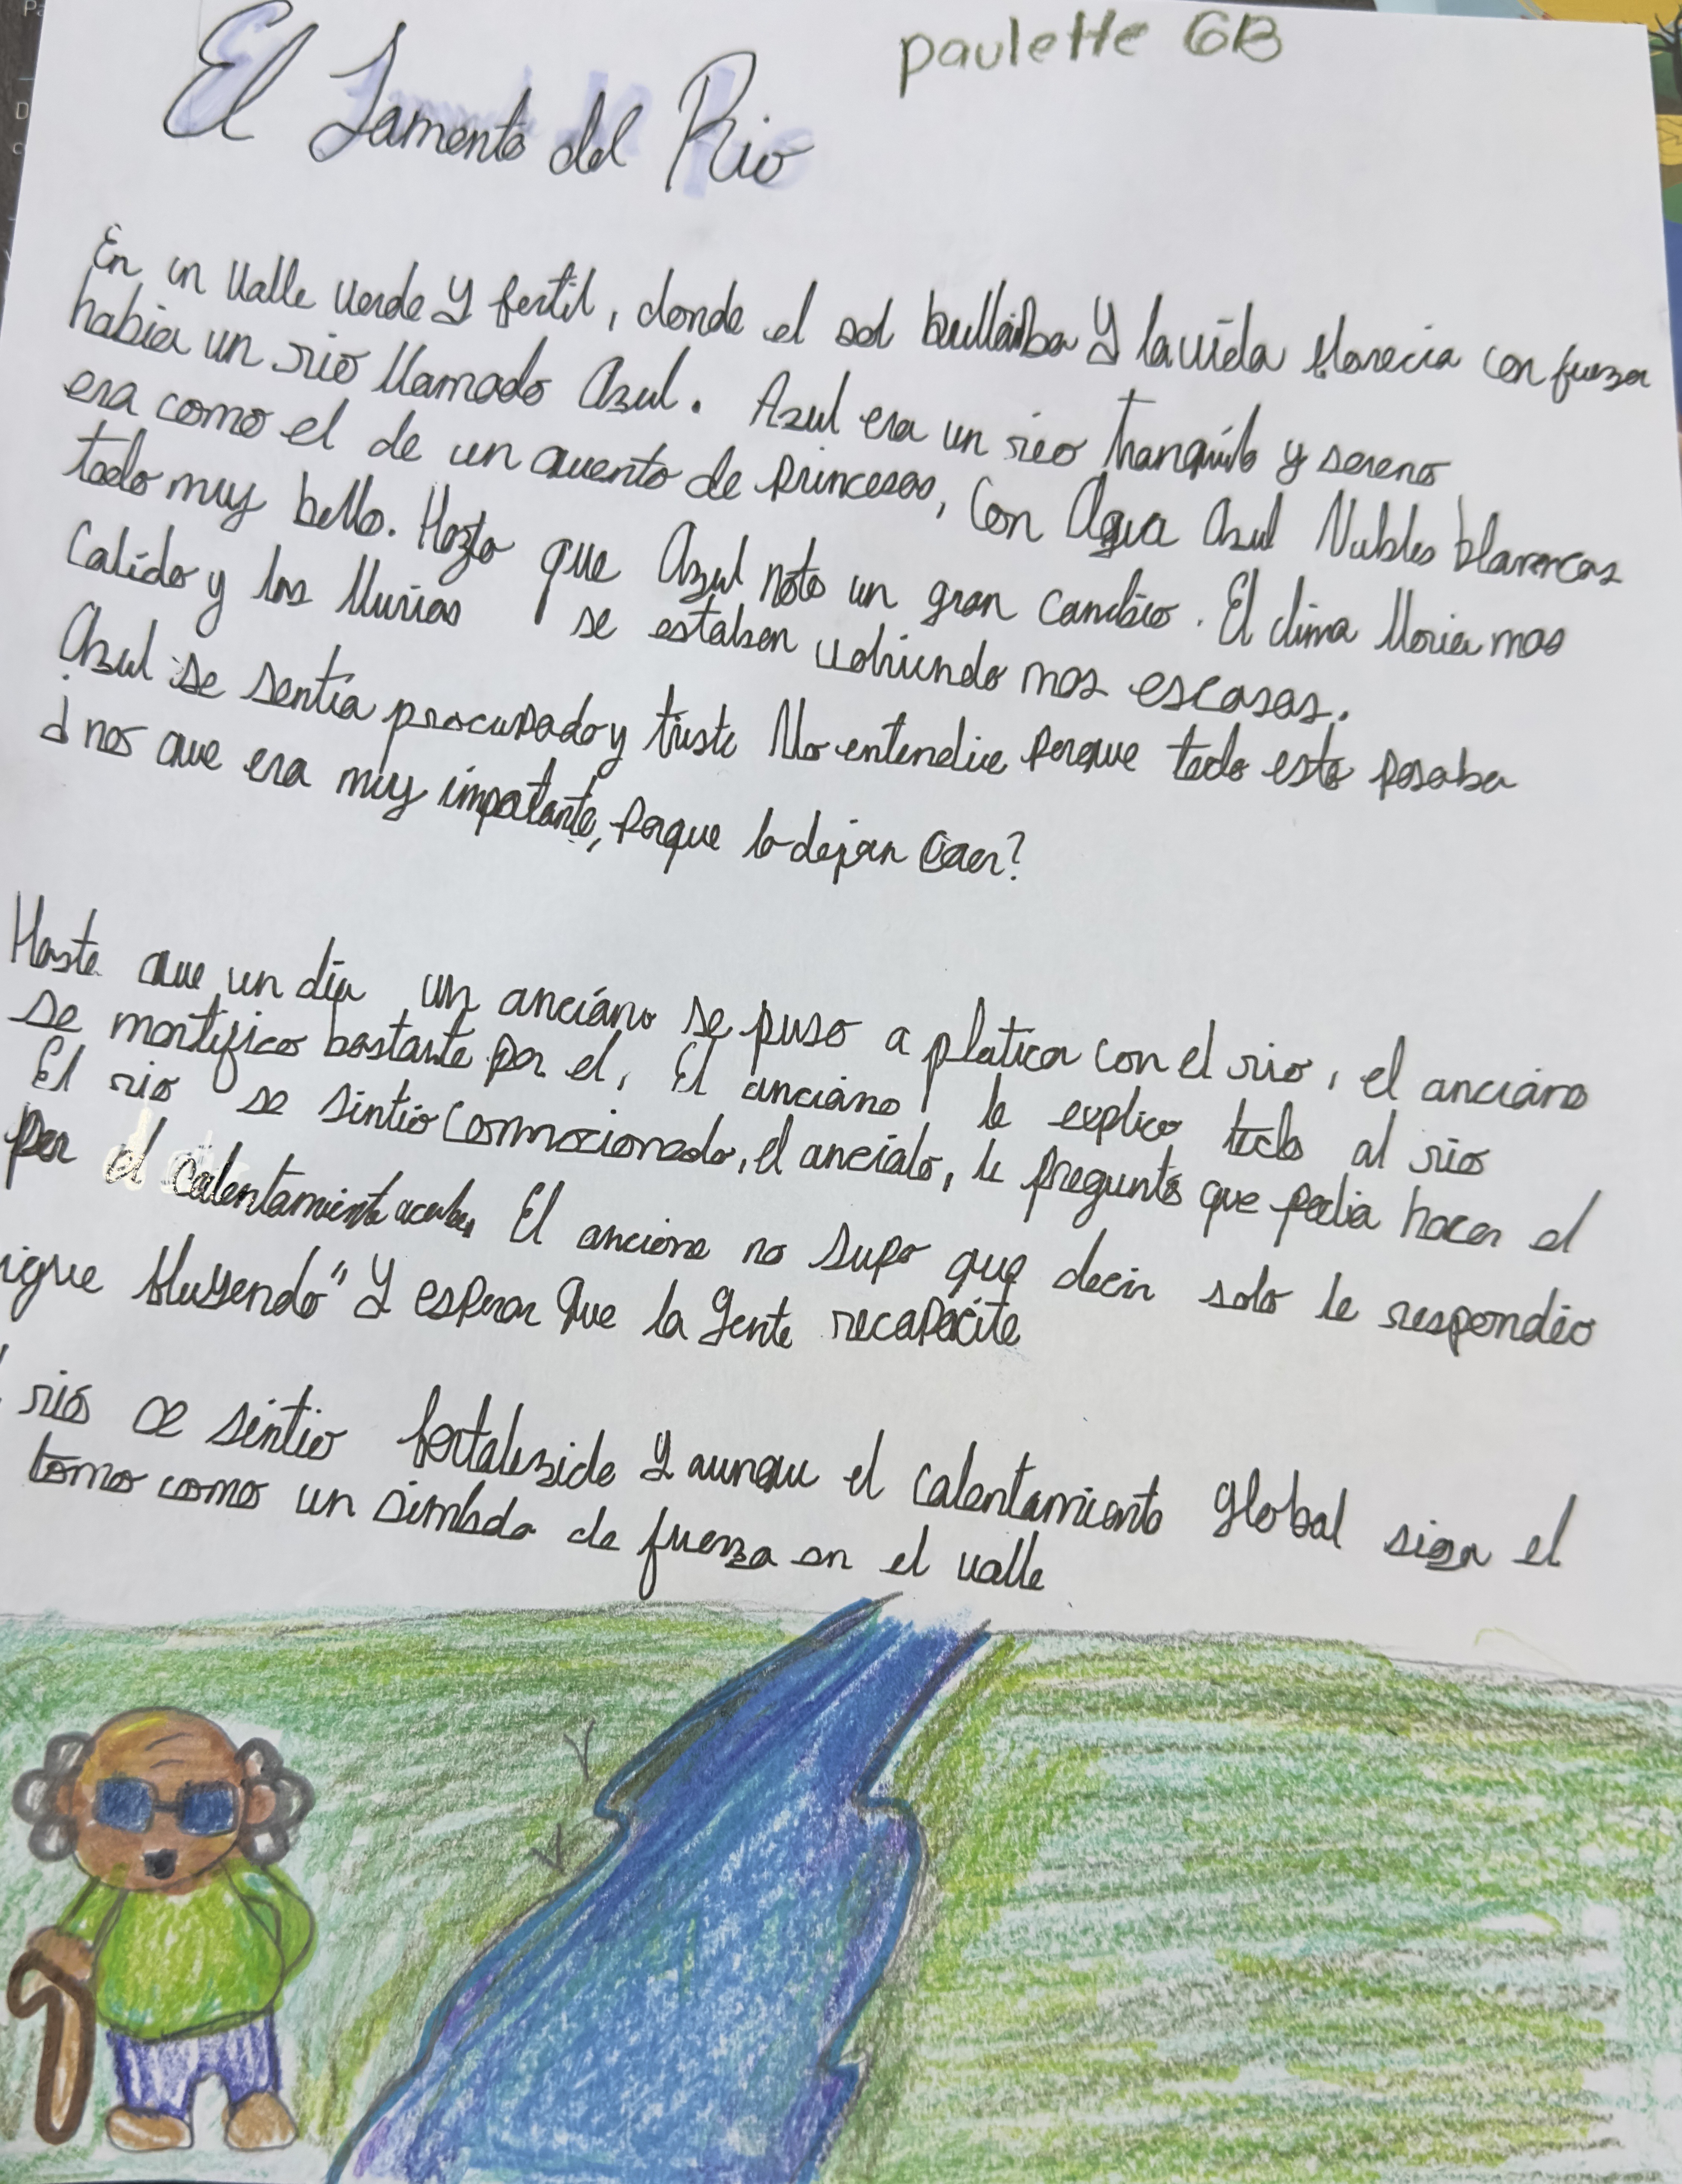 paulette 6B
El Lamento del Rio
En un valle verde y fertil, donde el sol brillaba y la vida florecia con fuerza
habia un rio llamado Azul. Azul era un rio tranquilo y sereno
era como el de un cuento de princesas, con Agua Azul Nubles blancas
todo muy bello. Hasta que Azul noto un gran cambio. El clima
calido y las lluvias se estaban volviendo mas escasas.
Azul se sentía preocupado y triste No entendia porque todo esto pasaba
¿nos que era muy impotante, porque lo dejan caer?
Haste que un día un anciano se puso a platica con el rio, el anciano
se mortifico bastante por el, El anciano le explico todo al rio
El rio se sintio conmocionado, el ancialo, le pregunto que podia hacer el
por el calentamiento El anciano no supo que decir solo le respondio
igue fluyendo" Y esperar que la gente recapacite
rio se sintio fortalezido y aunque el calentamiento global siga el
tomo como un simbolo de fuerza en el valle